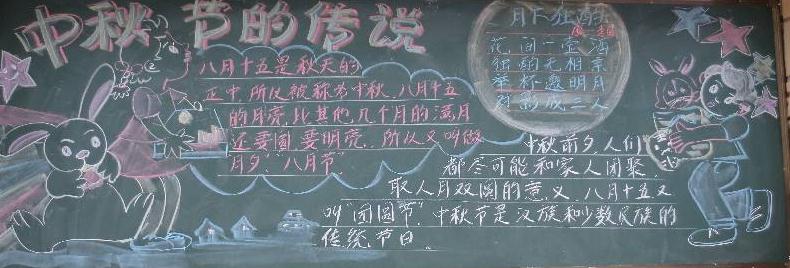 中秋节的传说
八月十五是秋天的
正中,所以被称为中秋,八月十五
的月亮,比其他几个月的满月
还要圆,要明亮,所以又叫做
月夕,“八月节”
月下独酌
花间一壶酒
独酌无相亲
举杯邀明月
对影成三人
中秋前夕人们
都尽可能和家人团聚,
取人月双圆的意义,八月十五又
叫“团圆节”,中秋节是汉族和少数民族的
传统节日。